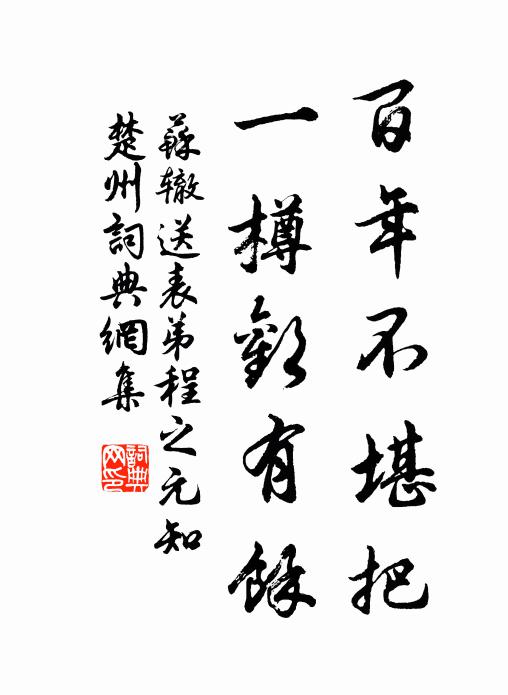 百年不堪把
一樽歡有餘
蘇辙送表弟程之元知
楚州詞典網集
詞典
网印